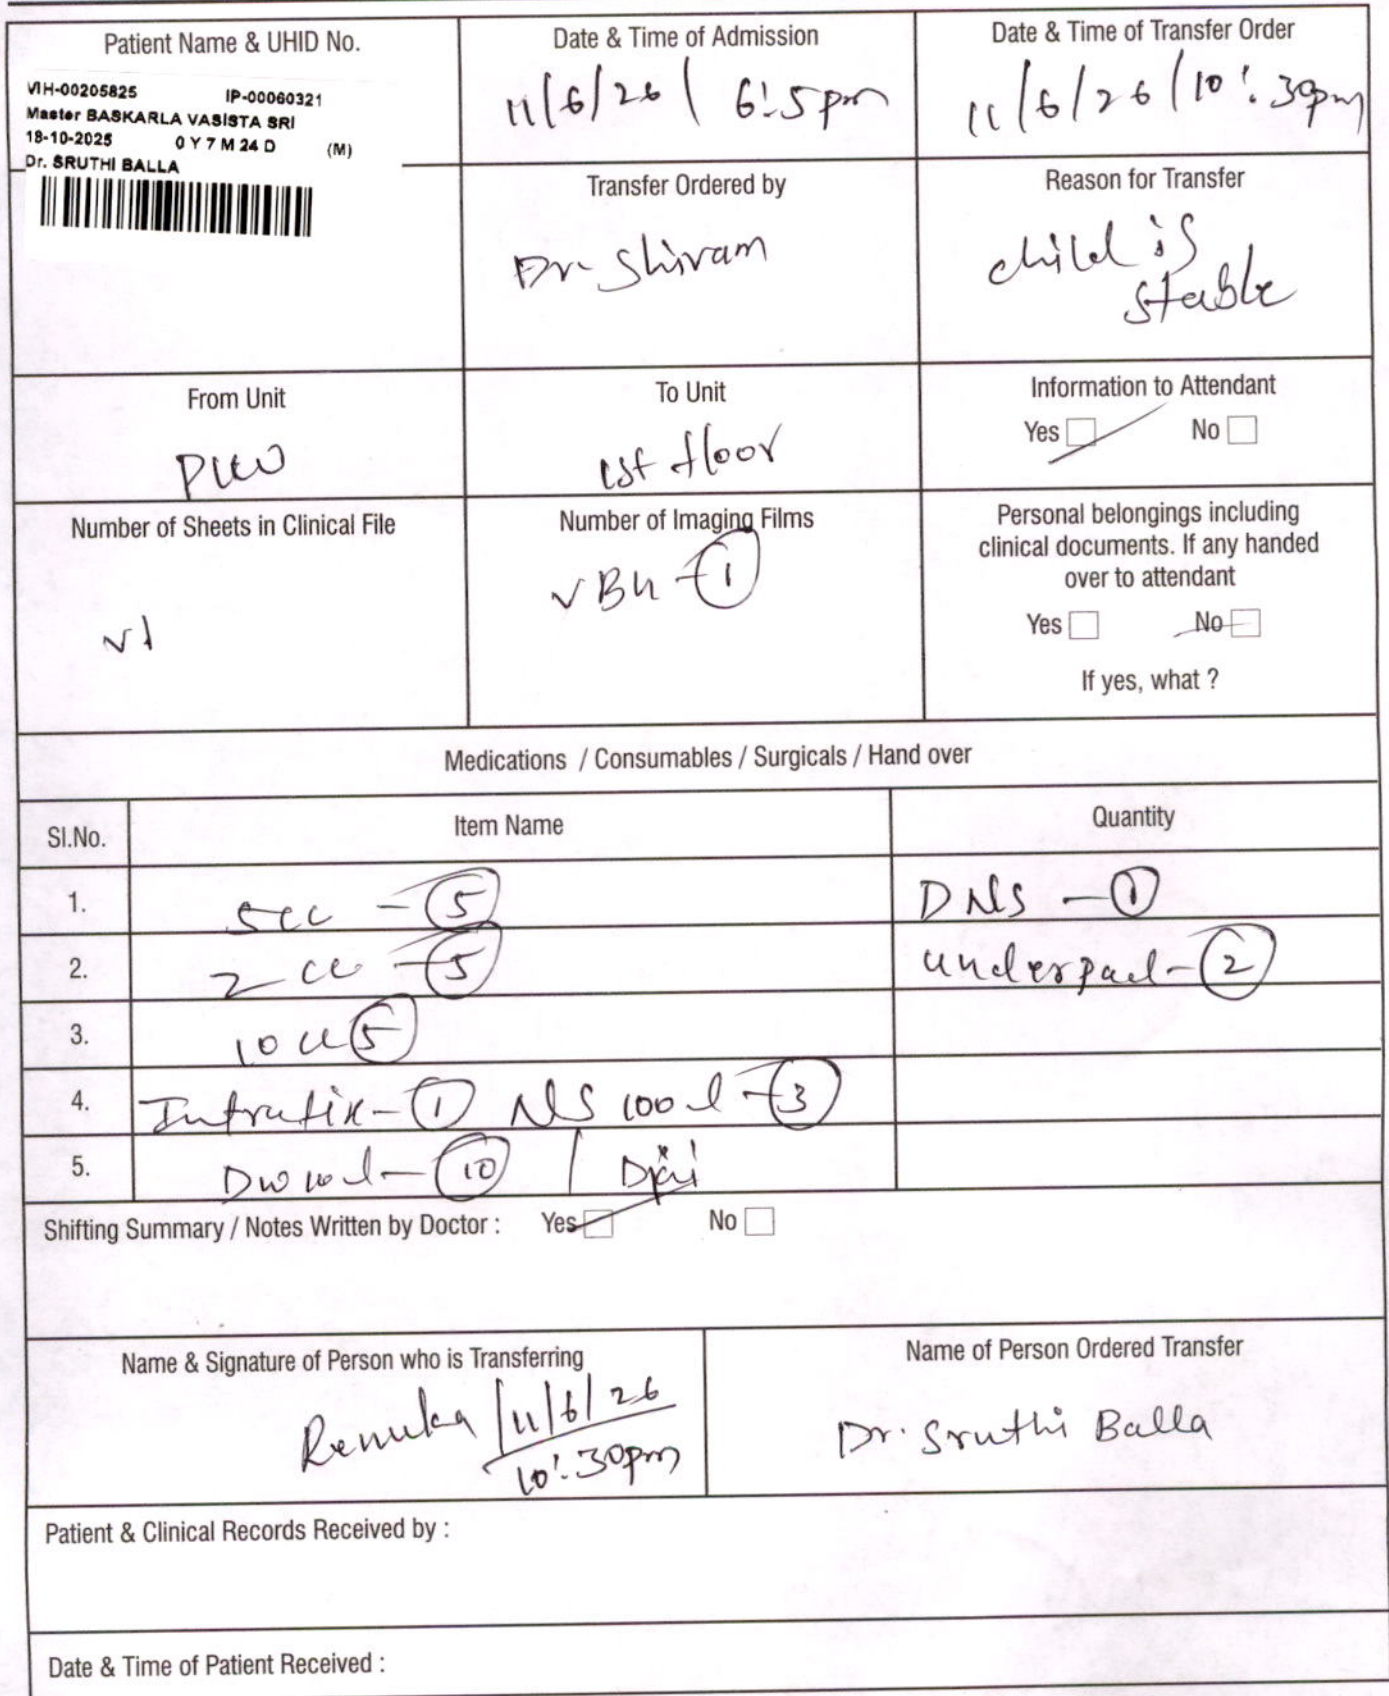 Patient Name & UHID No.
VIH-00205825 IP-00060321
Master BASKARLA VASISTA SRI
18-10-2025 0 Y 7 M 24 D (M)
Dr. SRUTHI BALLA
Date & Time of Admission
11/6/26 / 6:5pm
Date & Time of Transfer Order
11/6/26/10:30pm
Transfer Ordered by
Dr. Shivam
Reason for Transfer
child is
stable
From Unit
PICU
To Unit
1st floor
Information to Attendant
Yes No
Number of Sheets in Clinical File
Number of Imaging Films
1
Personal belongings including
clinical documents. If any handed
over to attendant
Yes No
If yes, what ?
Medications / Consumables / Surgicals / Hand over
Sl.No. Item Name Quantity
1. 5cc - 5 DNS - 1
2. 2cc - 5 underpad - 2
3. 10cc 5
4. Intrafix - 1 NS 100 - 3
5. 10
Shifting Summary / Notes Written by Doctor : Yes No
Name & Signature of Person who is Transferring
Renuka 11/6/26
10:30pm
Name of Person Ordered Transfer
Dr. Sruthi Balla
Patient & Clinical Records Received by :
Date & Time of Patient Received :